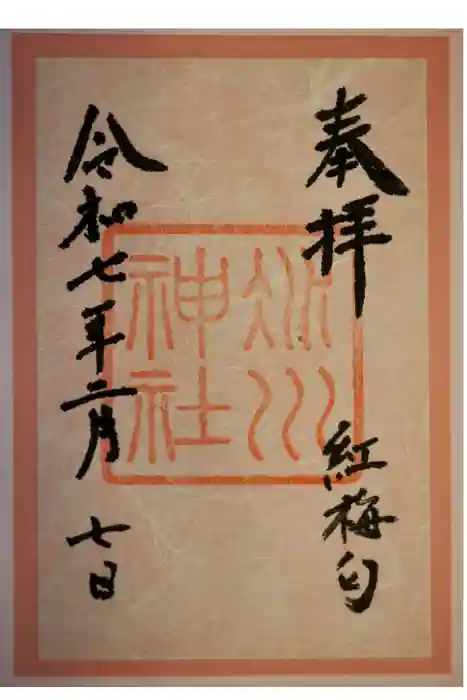 奉拝
紅梅匂
氷川
神社
令和七年二月 七日